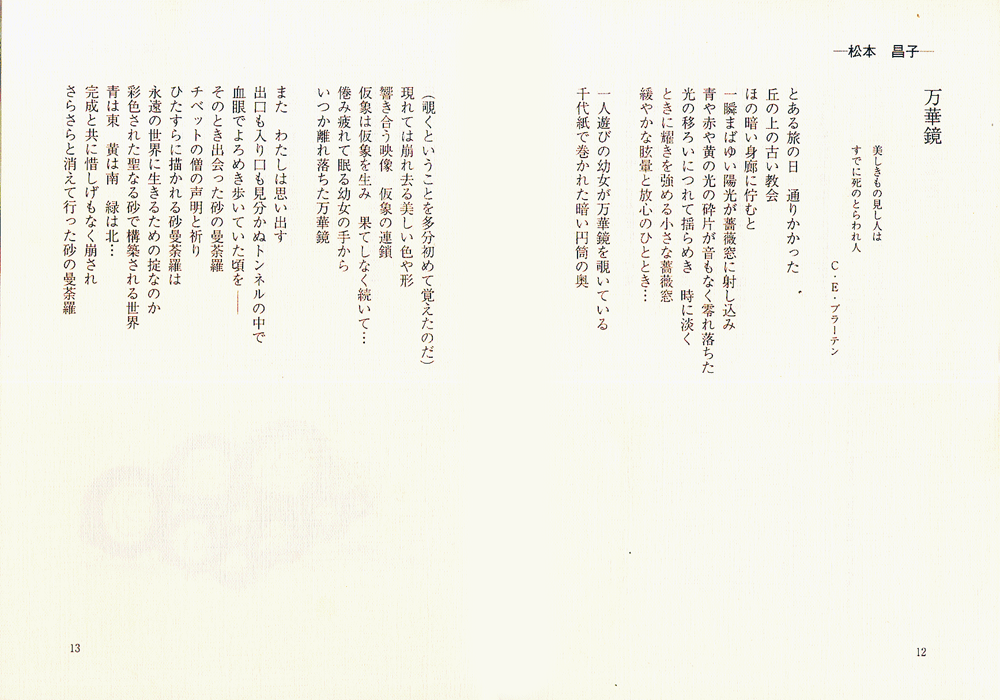 松本　昌子
万華鏡
美しきもの見し人は
すでに死のとらわれ人
C・E・プラーテン
とある旅の日　通りかかった
丘の上の古い教会
ほの暗い身廊に佇むと
一瞬まばゆい陽光が薔薇窓に射し込み
青や赤や黄の光の砕片が音もなく零れ落ちた
光の移ろいにつれて揺らめき　時に淡く
ときに耀きを強める小さな薔薇窓
緩やかな眩暈と放心のひととき…
一人遊びの幼女が万華鏡を覗いている
千代紙で巻かれた暗い円筒の奥
12
（覗くということを多分初めて覚えたのだ）
現れては崩れ去る美しい色や形
響き合う映像　仮象の連鎖
仮象は仮象を生み　果てしなく続いて…
倦み疲れて眠る幼女の手から
いつか離れ落ちた万華鏡
また　わたしは思い出す
出口も入り口も見分かぬトンネルの中で
血眼でよろめき歩いていた頃を――
そのとき出会った砂の曼荼羅
チベットの僧の声明と祈り
ひたすらに描かれる砂曼荼羅は
永遠の世界に生きるための掟なのか
彩色された聖なる砂で構築される世界
青は東　黄は南　緑は北…
完成と共に惜しげもなく崩され
さらさらと消えて行った砂の曼荼羅
13